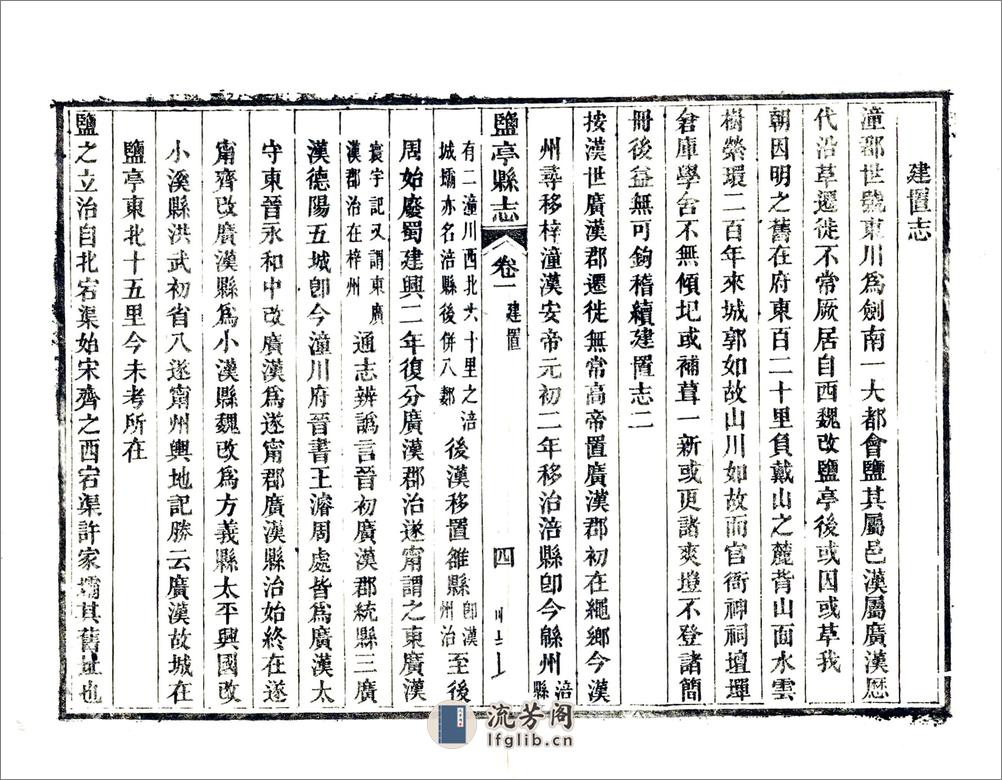 建置志
潼郡世號東川爲劍南一大都會鹽其屬邑漢屬廣漢厯
代沿革遷徙不常厥居自西魏改鹽亭後或因或革我
朝因明之舊在府東百二十里負戴山之麓背山面水雲
樹縈環二百年來城郭如故山川如故而官衙神祠壇墠
倉庫學舍不無傾圮或補葺一新或更諸爽塏不登諸簡
冊後益無可鉤稽續建置志二
按漢世廣漢郡遷徙無常高帝置廣漢郡初在繩鄉今漢
州尋移梓潼漢安帝元初二年移治涪縣卽今緜州涪縣
鹽亭縣志 卷一 建置 四
有二潼川西北六十里之涪城壩亦名涪縣後併入郪 後漢移置雒縣卽漢州治至後
周始廢蜀建興二年復分廣漢郡治遂甯謂之東廣漢
寰宇記又謂東廣漢郡治在梓州 通志辨譌言晉初廣漢郡統縣三廣
漢德陽五城卽今潼川府晉書王濬周處皆爲廣漢太
守東晉永和中改廣漢爲遂甯郡廣漢縣治始終在遂
甯齊改廣漢縣爲小漢縣魏改爲方義縣太平興國改
小溪縣洪武初省入遂甯州輿地記勝云廣漢故城在
鹽亭東北十五里今未考所在
鹽之立治自北宕渠始宋齊之西宕渠許家壩其舊址也
流芳阁
lfglib.cn